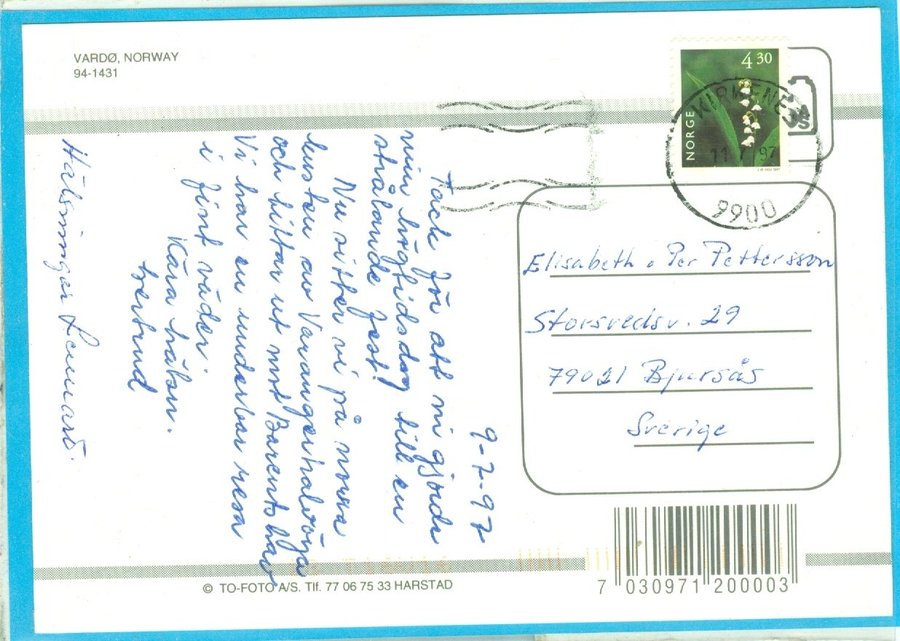 VARDØ, NORWAY
94-1431
NORGE
4 30
KIRKENES
11 7 97
9900
9-7-97
Tack för att ni gjorde
min högtidsdag till en
strålande fest!
Nu sitter vi på norra
kusten av Varangerhalvöja
och tittar ut mot Barents hav
Vi har en underbar resa
i fint väder.
Kära hälsn.
Gertrud
Hälsningar Lennart.
Elisabeth o Per Pettersson
Storsvedsv. 29
79021 Bjursås
Sverige
© TO-FOTO A/S. Tlf. 77 06 75 33 HARSTAD
7 030971 200003